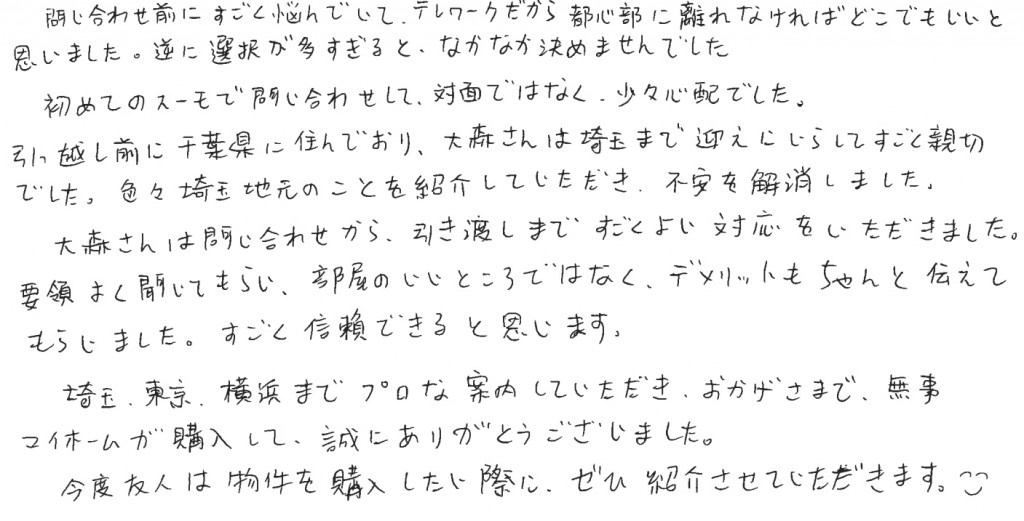 問い合わせ前にすごく悩んでいて、テレワークだから都心部に離れなければどこでもいいと
思いました。逆に選択が多すぎると、なかなか決めませんでした
初めてのスーモで問い合わせして、対面ではなく、少々心配でした。
引っ越し前に千葉県に住んでおり、大森さんは埼玉まで迎えにいらしてすごく親切
でした。色々埼玉地元のことを紹介していただき、不安を解消しました。
大森さんは問い合わせから、引き渡しまですごくよい対応をいただきました。
要領よく聞いてもらい、部屋のいいところではなく、デメリットもちゃんと伝えて
もらいました。すごく信頼できると思います。
埼玉、東京、横浜までプロな案内していただき、おかげさまで、無事
マイホームが購入して、誠にありがとうございました。
今度友人は物件を購入したい際に、ぜひ紹介させていただきます。